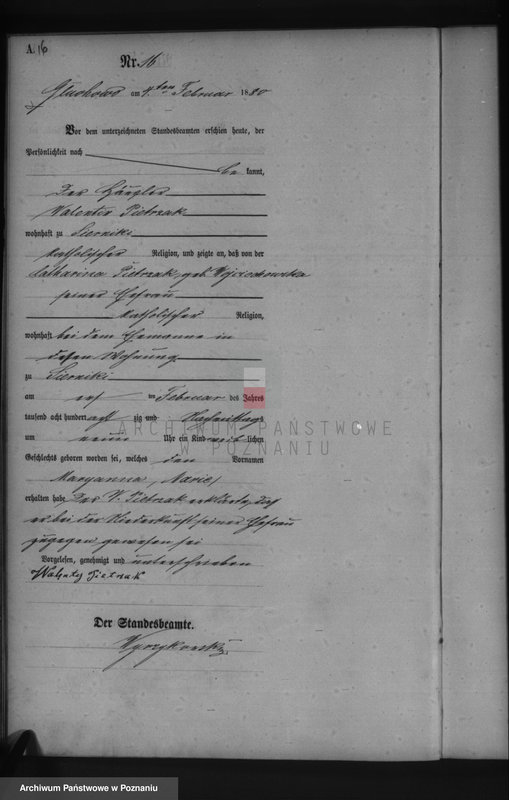 A. 16
Nr. 16
Gluchowo am 4ten Februar 1880
Vor dem unterzeichneten Standesbeamten erschien heute, der
Persönlichkeit nach
be kannt,
Der Häusler
Valentin Pietrzak
wohnhaft zu Sierniki
katholischer Religion, und zeigte an, daß von der
Catharina Pietrzak, geb. Wojciechowska
seiner Ehefrau
katholischer Religion,
wohnhaft bei dem Ehemanne in
dessen Wohnung
zu Sierniki
am im Februar des Jahres
tausend acht hundert acht zig und Nachmittags
um neun Uhr ein Kind weiblichen
Geschlechts geboren worden sei, welches den Vornamen
Maryanna, Marie,
erhalten habe Der V. Pietrzak erklärte, daß
er bei der Niederkunft seiner Ehefrau
zugegen gewesen sei
Vorgelesen, genehmigt und unterschrieben
Walenty Pietrzak
Der Standesbeamte.
ARCHIWUM PAŃSTWOWE
W POZNANIU
Archiwum Państwowe w Poznaniu